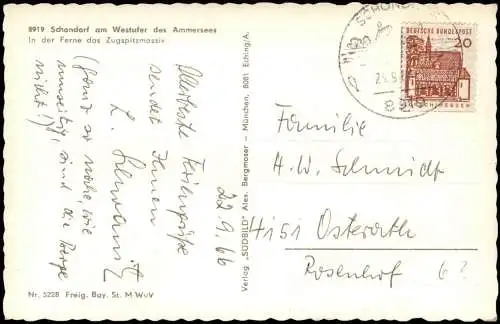 8919 Schondorf am Westufer des Ammersees
In der Ferne das Zugspitzmassiv
Allerbeste Feriengrüße
sendet Ihnen
L.
(Ganz so nahe, wie
umseitig, sind die Berge
nicht!)
22.9.66
Nr. 5228 Freig. Bay. St. M WuV
Verlag „SÜDBILD" Alex. Bergmoser - München, 8081 Eching/A.
SCHONDORF
DEUTSCHE BUNDESPOST
20
Familie
H. W. Schmidt
4151 Osterath
Rosenhof 6?